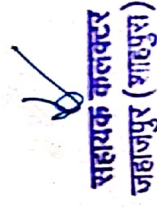 सहायक कलक्टर
जहाजपुर (शाहपुरा)